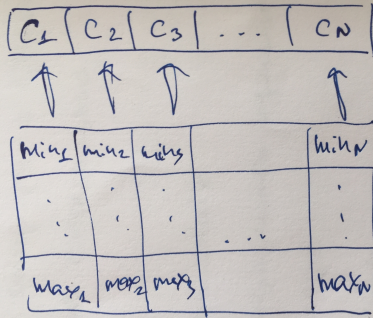 C1 C2 C3 ... CN
min1 min2 min3 minN
...
max1 max2 max3 maxN